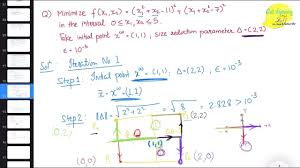 Q) Minimize f(x₁,x₂) = (x₁²+x₂-11)²+(x₁+x₂²-7)²
in the interval 0≤x₁,x₂≤5.
Take initial point x⁽⁰⁾ = (1,1), size reduction parameter Δ=(2,2)
ε = 10⁻³
Solⁿ. Iteration No 1
Step 1: Initial point x⁽⁰⁾ = (1,1), Δ=(2,2), ε=10⁻³
x̄ = x⁽⁰⁾ = (1,1)
Step 2: ||Δ|| = √2²+2² = √8 = 2.828 > 10⁻³
(0,2)
(2,2)
(1,1)
(0,0)
(2,0)